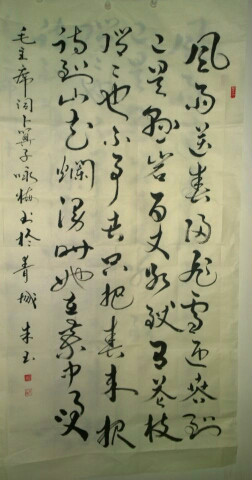 風雨送春歸飛雪迎春到
已是懸崖百丈冰猶有花枝
俏〻也不争春只把春来报
待到山花爛漫时她在叢中笑
毛主席词卜算子咏梅书於青城 朱玉